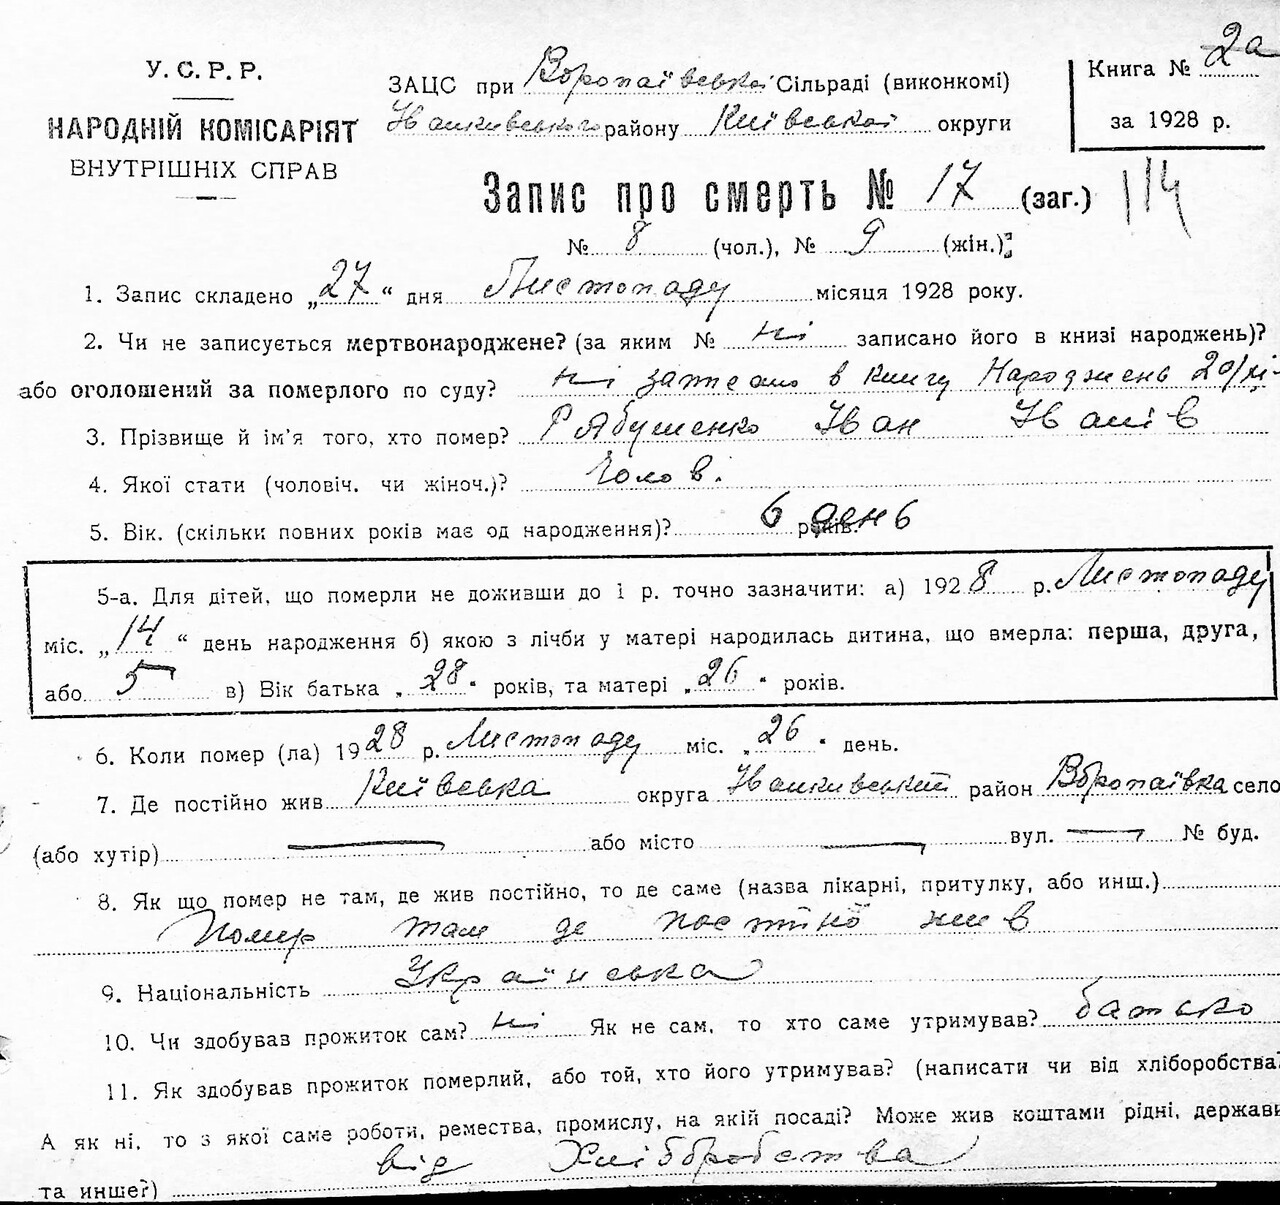 У. С. Р. Р.
НАРОДНІЙ КОМІСАРІЯТ
ВНУТРІШНІХ СПРАВ
ЗАЦС при Воропаївській Сільраді (виконкомі)
Іванківського району Київської округи
Книга № 2а
за 1928 р.
Запис про смерть № 17 (заг.) 114
№ 8 (чол.), № 9 (жін.)
1. Запис складено „27“ дня Листопаду місяця 1928 року.
2. Чи не записується мертвонароджене? (за яким № ні записано його в книзі народжень)?
або оголошений за померлого по суду? ні записано в книгу Народжень
3. Прізвище й ім'я того, хто помер? Рябушенко Іван Іванів
4. Якої стати (чоловіч. чи жіноч.)? Чолов.
5. Вік. (скільки повних років має од народження)? 6 день років.
5-а. Для дітей, що померли не доживши до 1 р. точно зазначити: а) 1928 р. Листопаду
міс. „14“ день народження б) якою з лічби у матері народилась дитина, що вмерла: перша, друга,
або 5 в) Вік батька „28“ років, та матері „26“ років.
6. Коли помер (ла) 1928 р. Листопаду міс. „26“ день.
7. Де постійно жив Київська округа Іванківський район Воропаївка село
(або хутір) — або місто — вул. — № буд.
8. Як що помер не там, де жив постійно, то де саме (назва лікарні, притулку, або инш.)
Помер там де постійно жив
9. Національність Українська
10. Чи здобував прожиток сам? ні Як не сам, то хто саме утримував? батько
11. Як здобував прожиток померлий, або той, хто його утримував? (написати чи від хліборобства?
А як ні, то з якої саме роботи, ремества, промислу, на якій посаді? Може жив коштами рідні, держави
та инше?) від Хліборобства